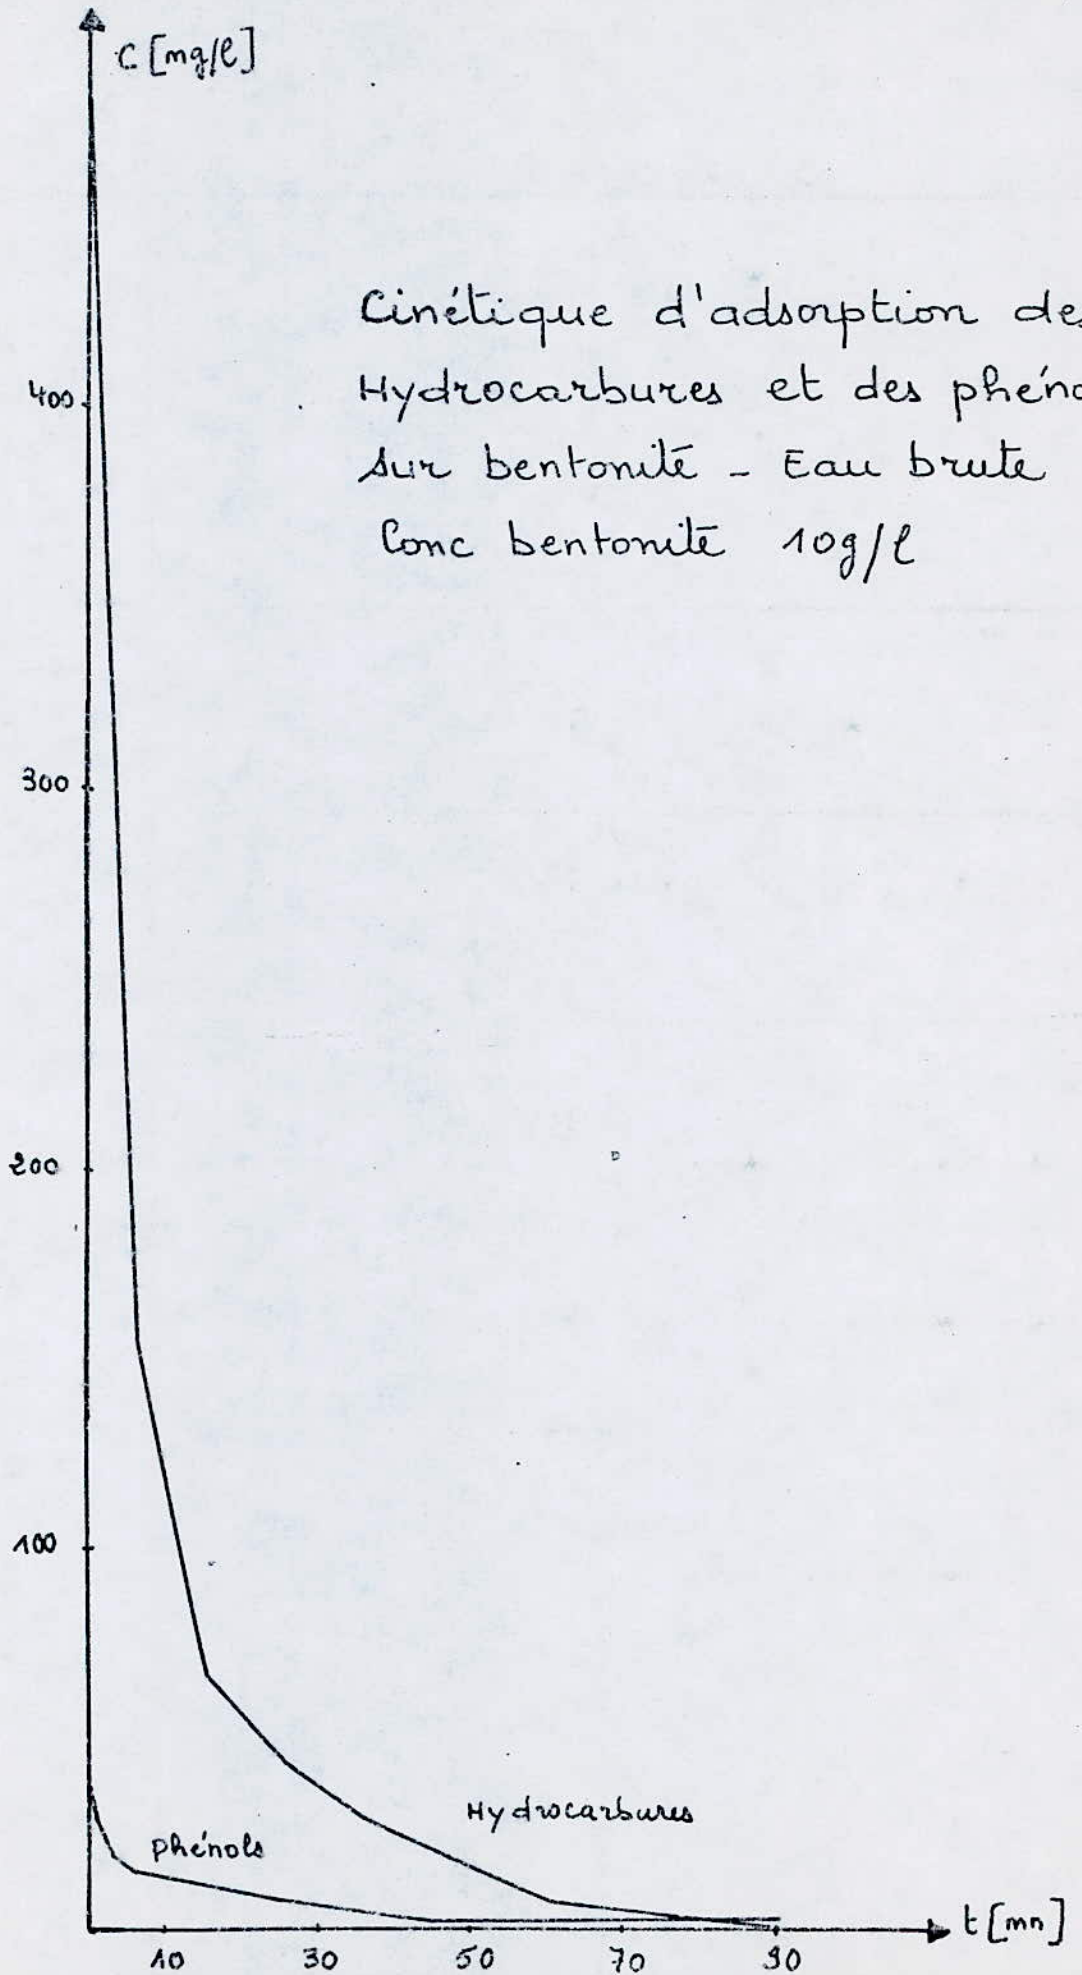 C [mg/l]
Cinétique d'adsorption des
Hydrocarbures et des phéno
sur bentonite - Eau brute
Conc bentonite 10g/l
400
300
200
100
Hydrocarbures
Phénols
t [mn]
10 30 50 70 90